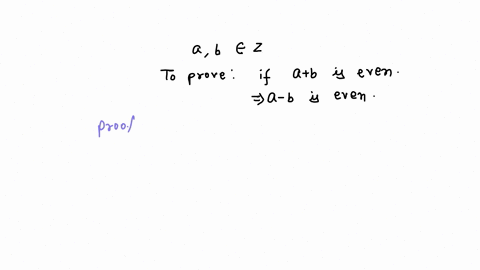 a, b ∈ Z
To prove: if a+b is even.
⇒ a-b is even.
proof